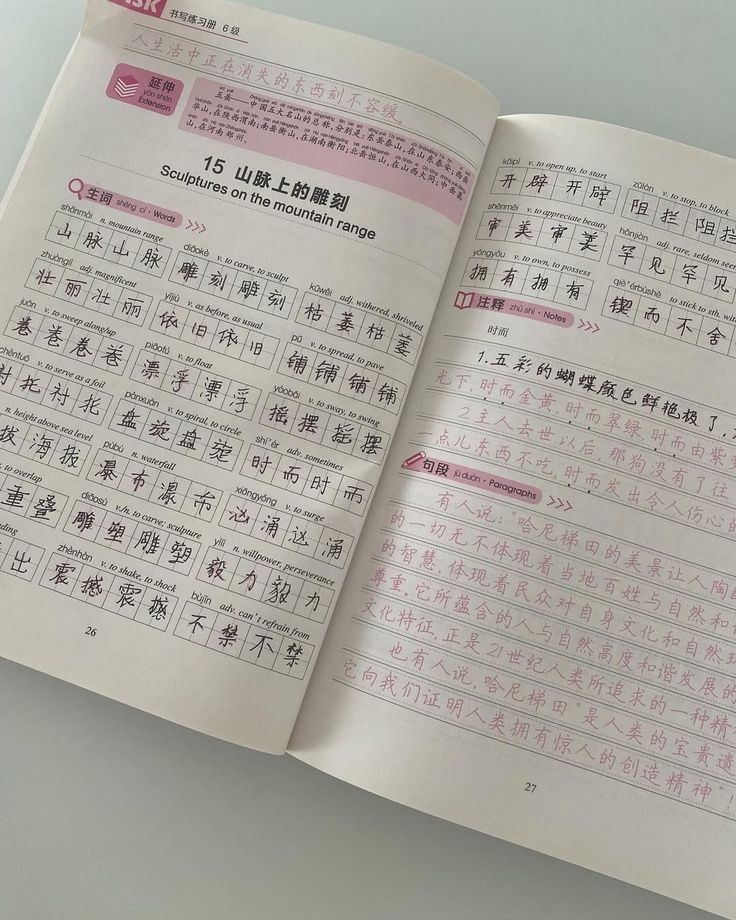 HSK
书写练习册 6级
人生活中正在消失的东西刻不容缓。
延伸
yán shēn
Extension
五岳——中国五大名山的总称,分别是:东岳泰山,在山东泰安;西岳
华山,在陕西渭南;南岳衡山,在湖南衡阳;北岳恒山,在山西大同;中岳嵩
山,在河南郑州。
15 山脉上的雕刻
Sculptures on the mountain range
生词 shēng cí · Words
shānmài n. mountain range
山脉山脉
diāokè v. to carve, to sculpt
雕刻雕刻
kūwěi adj. withered, shriveled
枯萎枯萎
zhuànglì adj. magnificent
壮丽壮丽
yījiù v. as before, as usual
依旧依旧
pū v. to spread, to pave
铺铺铺铺
juǎn v. to sweep along/up
卷卷卷卷
piāofú v. to float
漂浮漂浮
yáobǎi v. to sway, to swing
摇摆摇摆
chèntuō v. to serve as a foil
衬托衬托
pánxuán v. to spiral, to circle
盘旋盘旋
shí'ér adv. sometimes
时而时而
n. height above sea level
拔海拔
pùbù n. waterfall
瀑布瀑布
xiōngyǒng v. to surge
汹涌汹涌
to overlap
重叠
diāosù v./n. to carve; sculpture
雕塑雕塑
yìlì n. willpower, perseverance
毅力毅力
出
zhènhàn v. to shake, to shock
震撼震撼
bùjīn adv. can't refrain from
不禁不禁
26
kāipì v. to open up, to start
开辟开辟
zǔlán v. to stop, to block
阻拦阻拦
shěnměi v. to appreciate beauty
审美审美
hǎnjiàn adj. rare, seldom seen
罕见罕见
yōngyǒu v. to own, to possess
拥有拥有
qiè'érbùshě to stick to sth. with
锲而不舍
注释 zhù shì · Notes
时而
1.五彩的蝴蝶颜色鲜艳极了,
光下,时而金黄,时而翠绿,时而由紫
2.主人去世以后,那狗没有了往
一点儿东西不吃,时而发出令人伤心的
句段 jù duàn · Paragraphs
有人说:“哈尼梯田的美景让人陶
的一切无不体现着当地百姓与自然和
的智慧,体现着民众对自身文化和自然环
尊重。它所蕴含的人与自然高度和谐发展的
文化特征,正是21世纪人类所追求的一种精
也有人说,哈尼梯田“是人类的宝贵遗
它向我们证明人类拥有惊人的创造精神”!
27